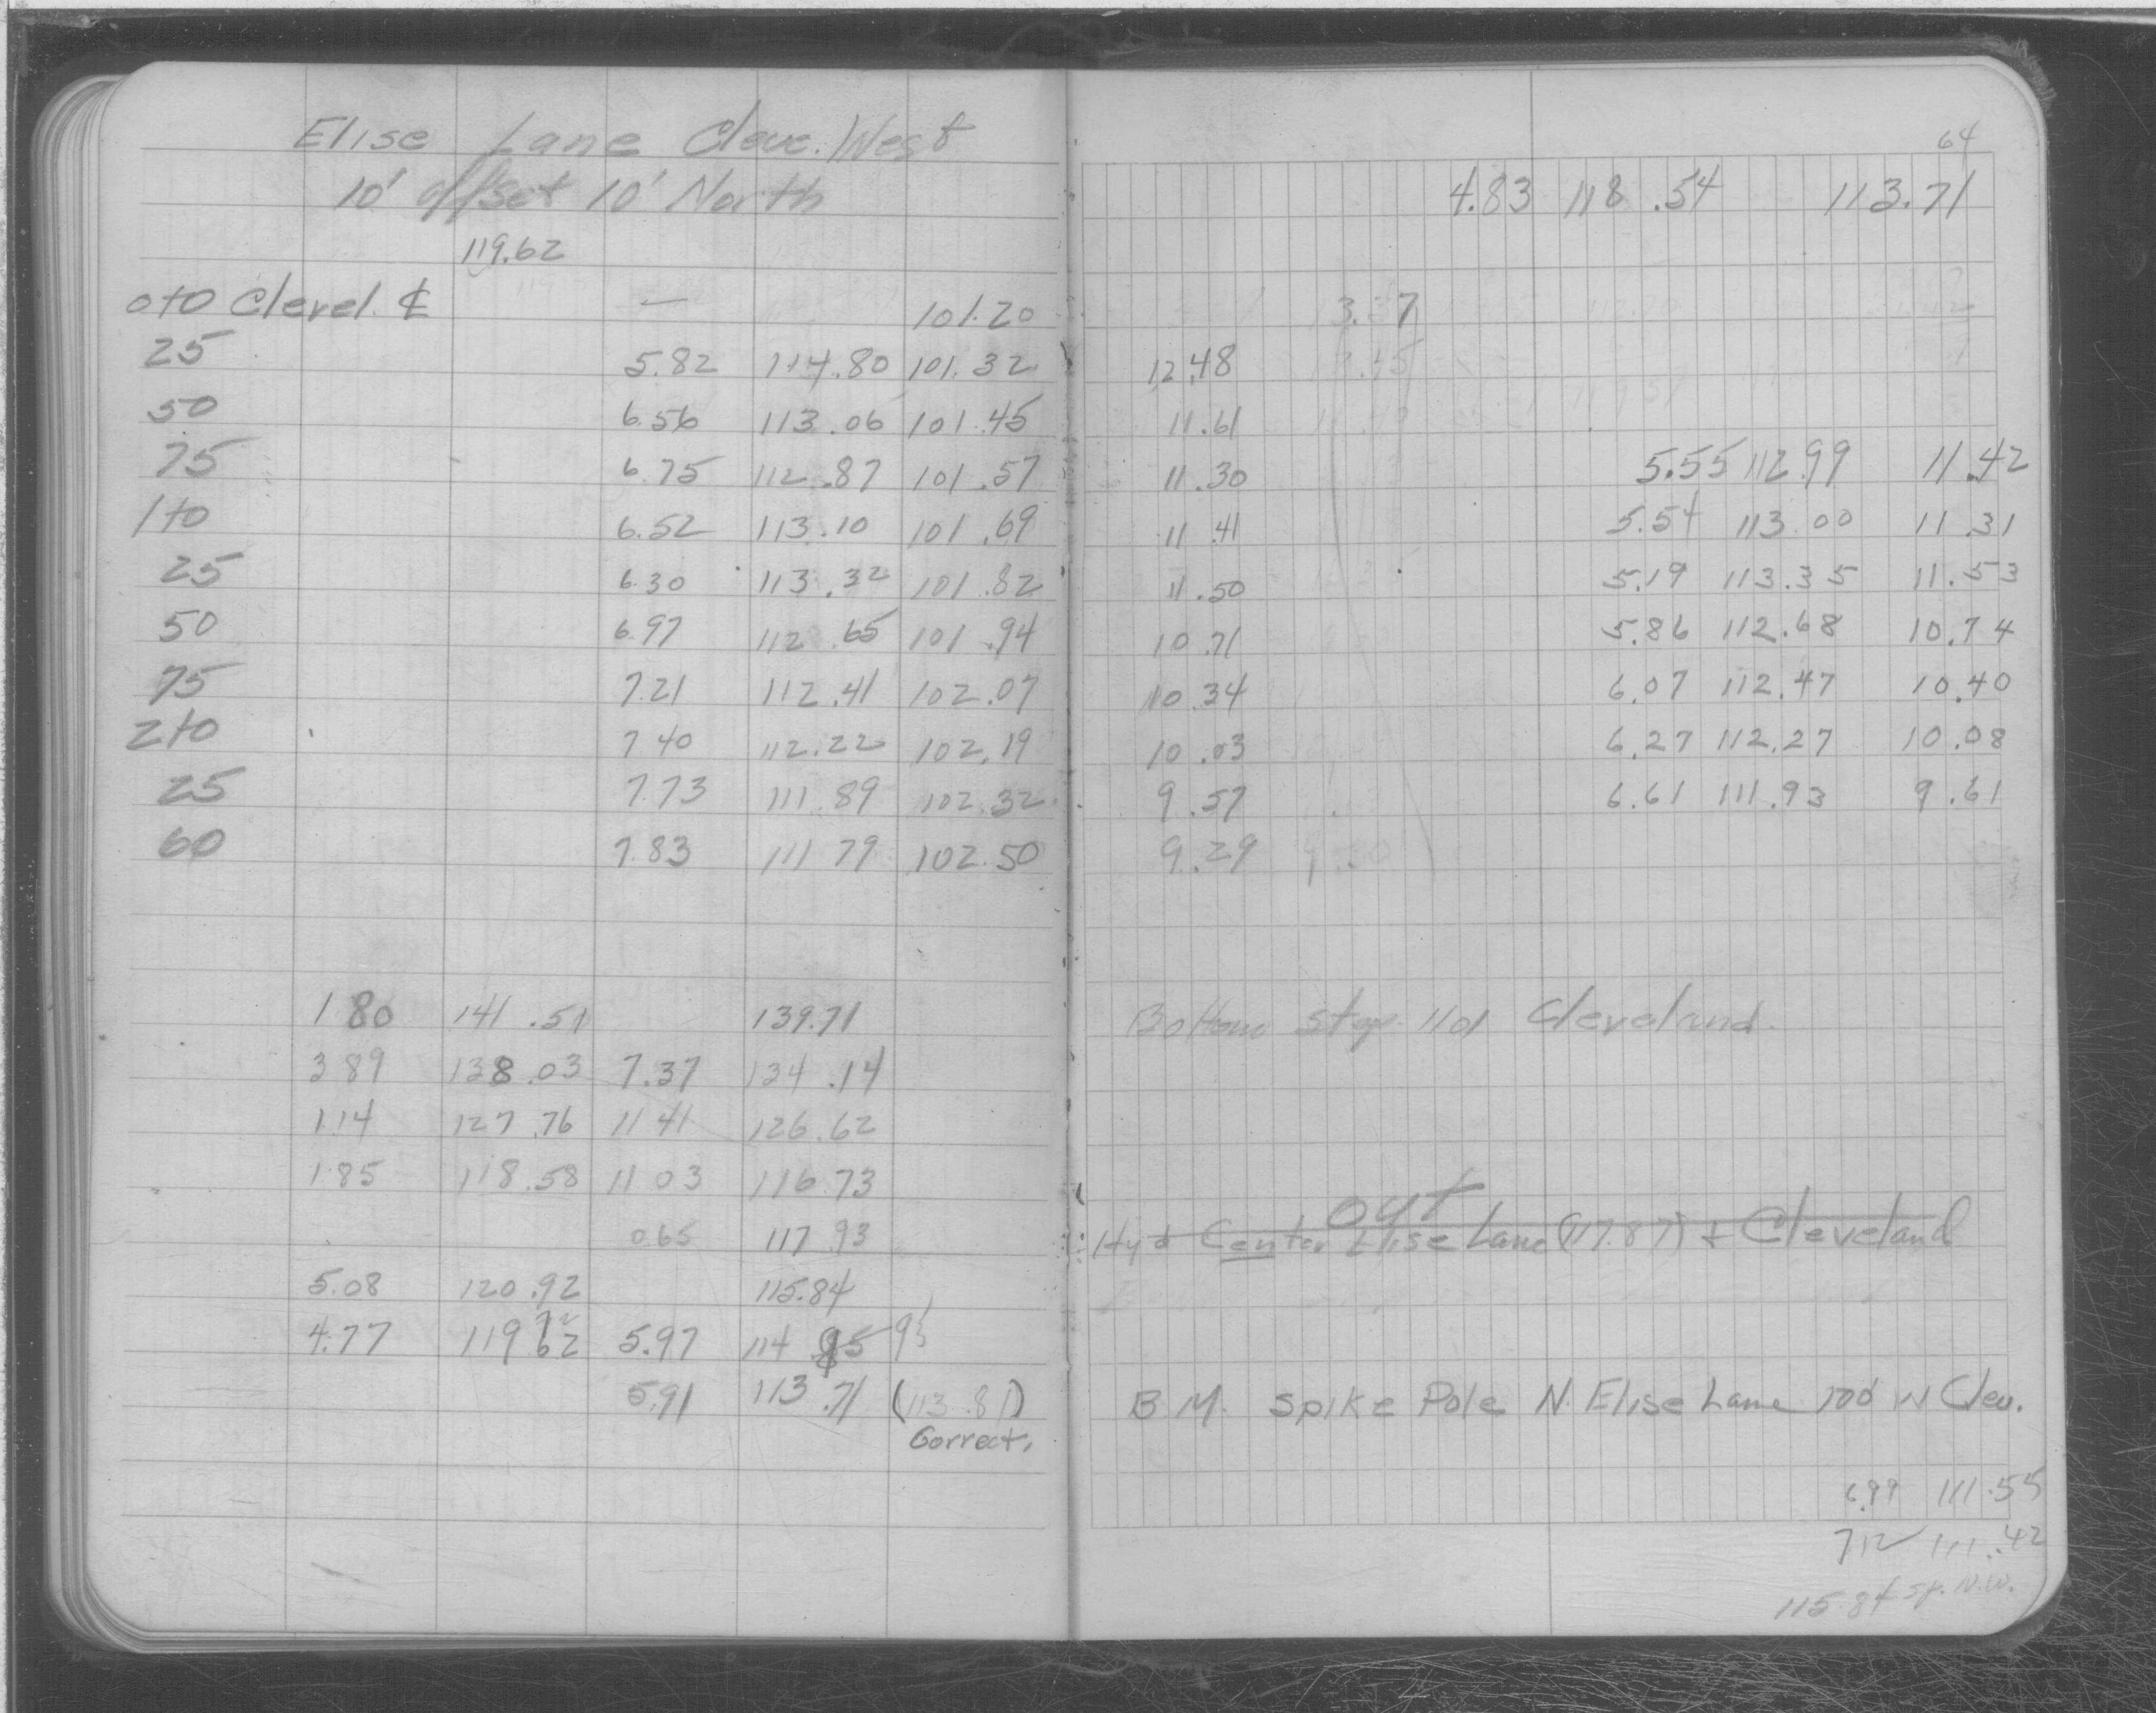 Elise Lane Cleve. West
10' offset 10' North
119.62
0+0 Clevel. ℄ — 101.20
25 5.82 114.80 101.32
50 6.56 113.06 101.45
75 6.75 112.87 101.57
1+0 6.52 113.10 101.69
25 6.30 113.32 101.82
50 6.97 112.65 101.94
75 7.21 112.41 102.07
2+0 7.40 112.22 102.19
25 7.73 111.89 102.32
60 7.83 111.79 102.50
1.80 141.51 139.71
3.89 138.03 7.37 134.14
1.14 127.76 11.41 126.62
1.85 118.58 11.03 116.73
0.65 117.93
5.08 120.92 115.84
4.77 119.62 5.97 114.95
5.91 113.71 (113.81)
Correct.
64
4.83 118.54 113.71
3.37
12.48
11.61
11.30 5.55 112.99 11.42
11.41 5.54 113.00 11.31
11.50 5.19 113.35 11.53
10.71 5.86 112.68 10.74
10.34 6.07 112.47 10.40
10.03 6.27 112.27 10.08
9.57 6.61 111.93 9.61
9.29
Bottom step 1101 Cleveland.
out
Hyd Center Elise Lane (117.87) + Cleveland
B.M. Spike Pole N. Elise Lane 100' W Clev.
6.99 111.55
7.12 111.42
115.84 sp. N.W.